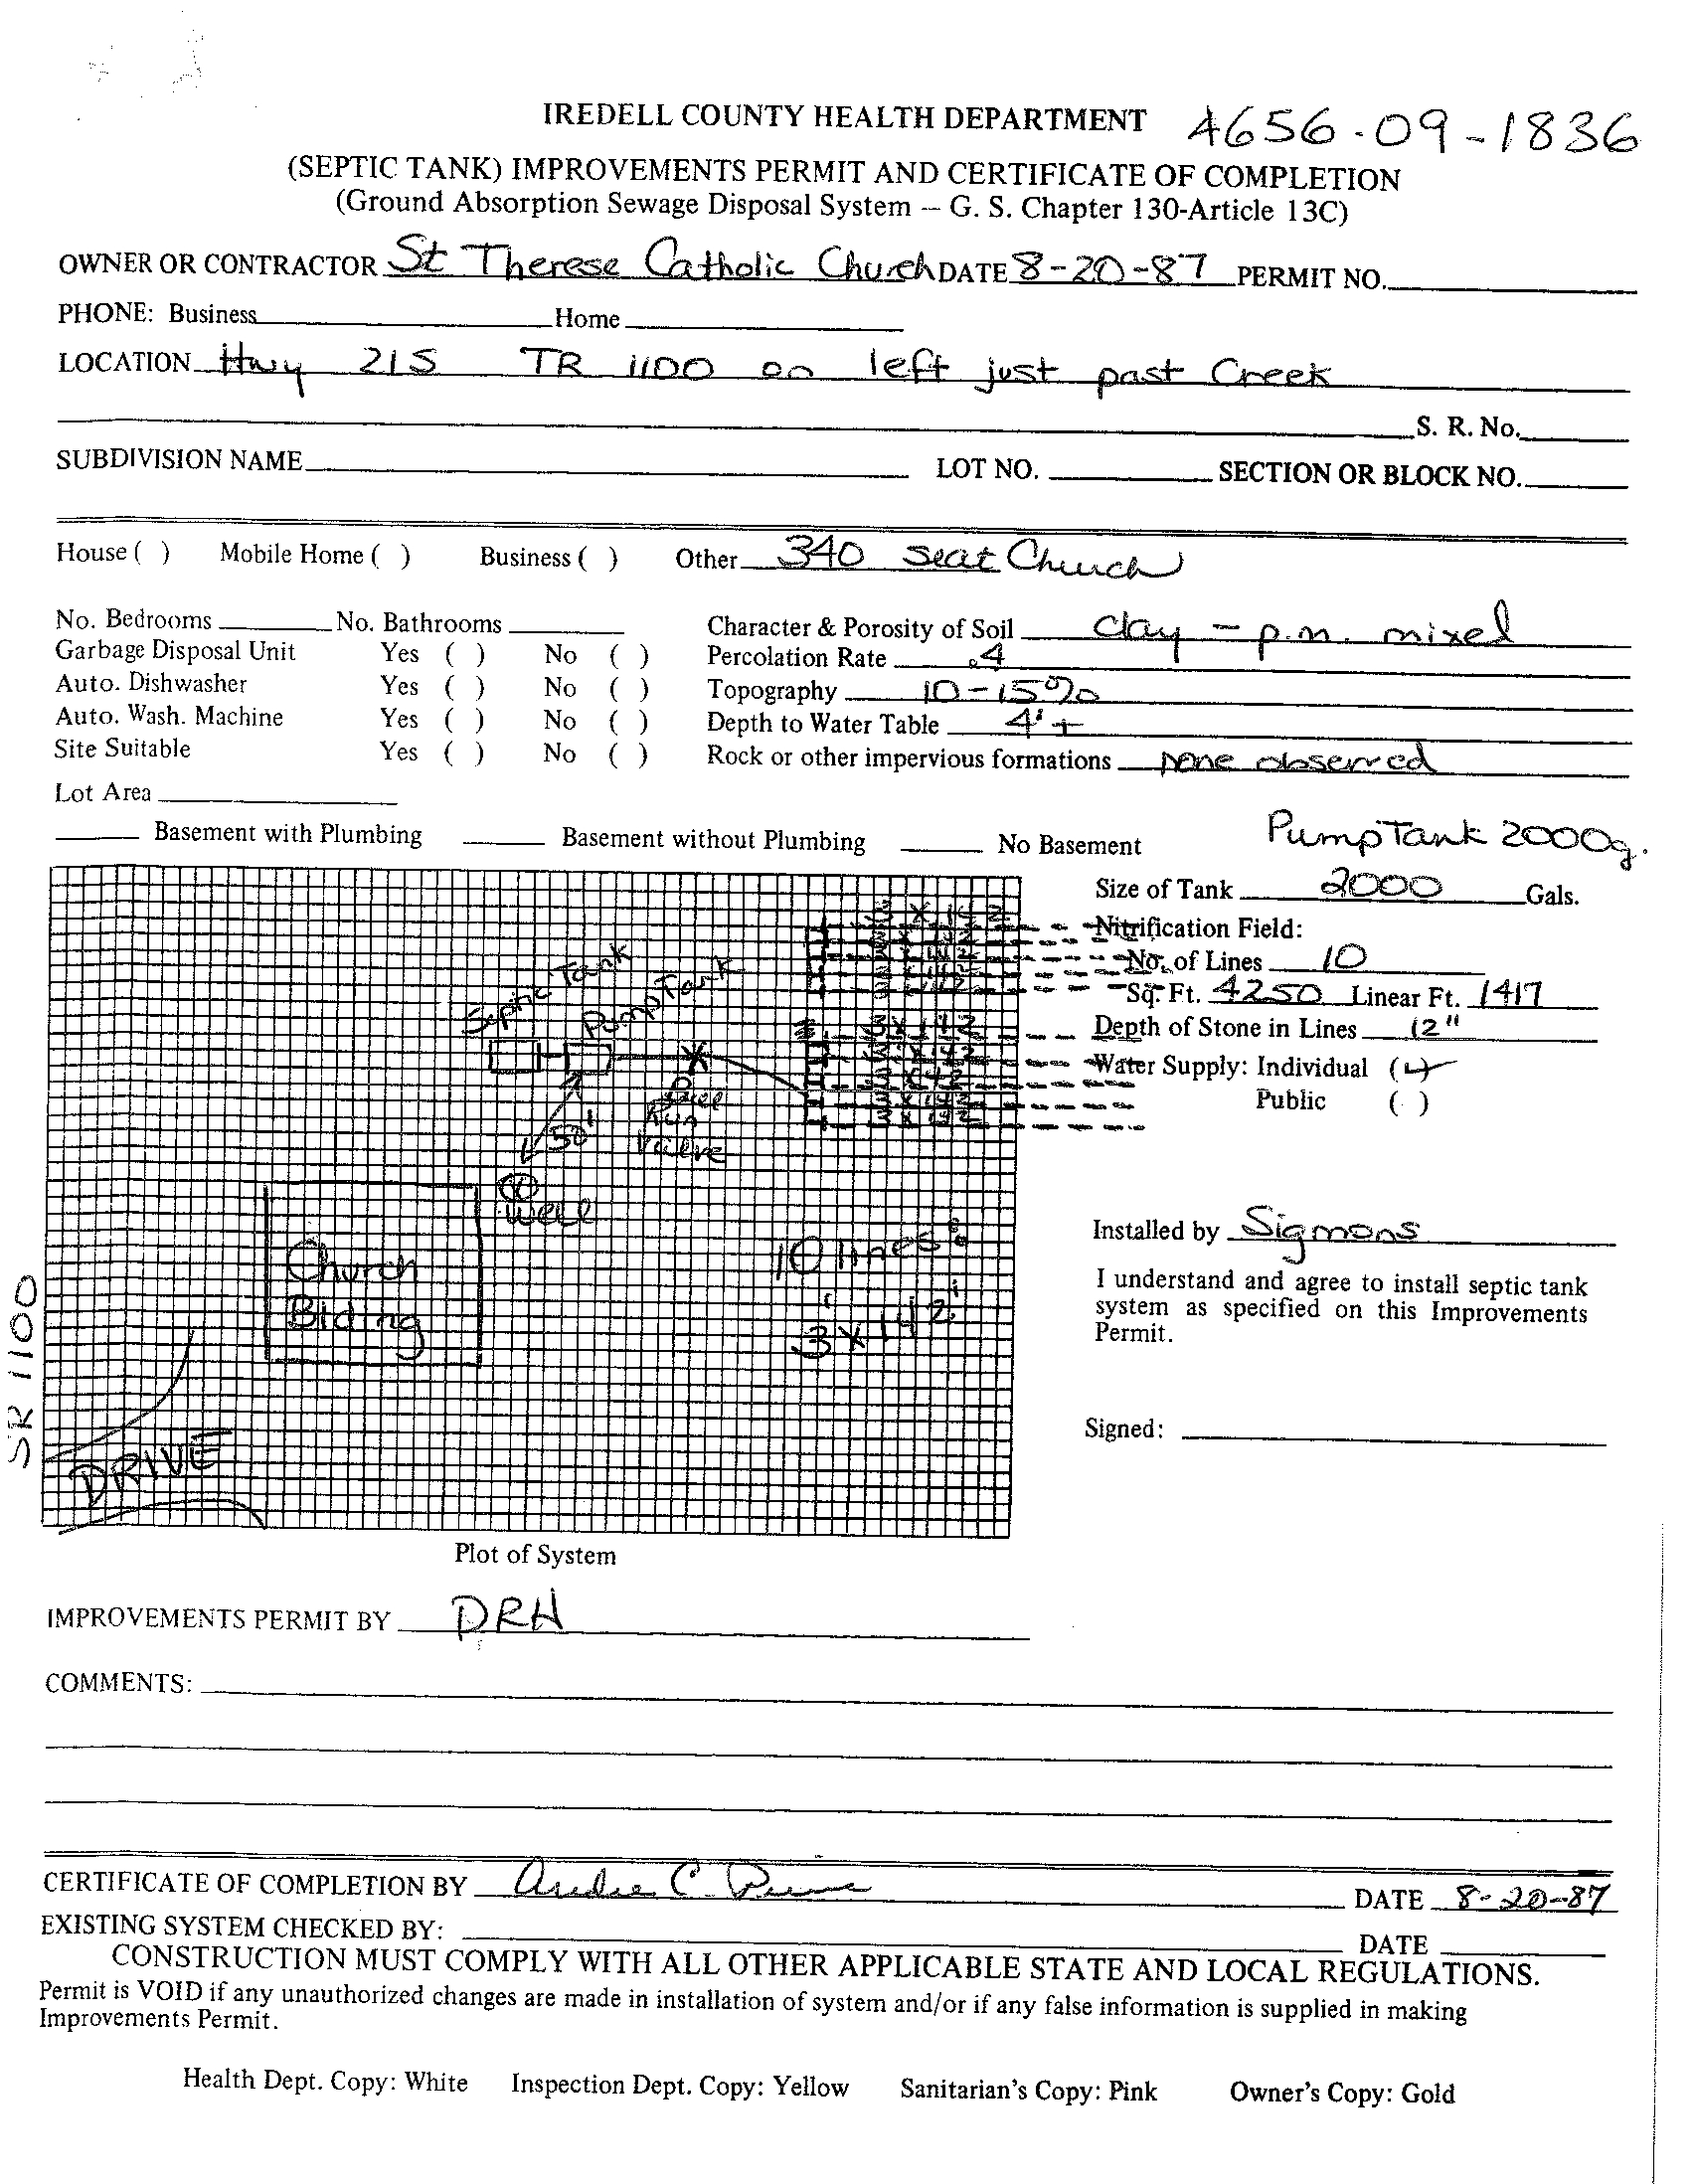 IREDELL COUNTY HEALTH DEPARTMENT 4656-09-1836
(SEPTIC TANK) IMPROVEMENTS PERMIT AND CERTIFICATE OF COMPLETION
(Ground Absorption Sewage Disposal System – G. S. Chapter 130-Article 13C)
OWNER OR CONTRACTOR St Therese Catholic Church DATE 8-20-87 PERMIT NO.
PHONE: Business Home
LOCATION Hwy 21S TR 1100 on left just past Creek
S. R. No.
SUBDIVISION NAME LOT NO. SECTION OR BLOCK NO.
House ( ) Mobile Home ( ) Business ( ) Other 340 seat Church
No. Bedrooms No. Bathrooms Character & Porosity of Soil clay - p.m. mixed
Garbage Disposal Unit Yes ( ) No ( ) Percolation Rate .4
Auto. Dishwasher Yes ( ) No ( ) Topography 10-15%
Auto. Wash. Machine Yes ( ) No ( ) Depth to Water Table 4'+
Site Suitable Yes ( ) No ( ) Rock or other impervious formations none observed
Lot Area
Basement with Plumbing Basement without Plumbing No Basement
Pump Tank 2000g.
Size of Tank 2000 Gals.
Nitrification Field:
No. of Lines 10
Sq. Ft. 4250 Linear Ft. 1417
Depth of Stone in Lines 12"
Water Supply: Individual (✓)
Public ( )
Septic Tank
Pump Tank
50'
Valve
Well
Church
Blding
10 lines:
3' x 142'
SR 1100
DRIVE
Installed by Sigmons
I understand and agree to install septic tank
system as specified on this Improvements
Permit.
Signed:
Plot of System
IMPROVEMENTS PERMIT BY DRH
COMMENTS:
CERTIFICATE OF COMPLETION BY Andre C. DATE 8-20-87
EXISTING SYSTEM CHECKED BY: DATE
CONSTRUCTION MUST COMPLY WITH ALL OTHER APPLICABLE STATE AND LOCAL REGULATIONS.
Permit is VOID if any unauthorized changes are made in installation of system and/or if any false information is supplied in making
Improvements Permit.
Health Dept. Copy: White Inspection Dept. Copy: Yellow Sanitarian's Copy: Pink Owner's Copy: Gold